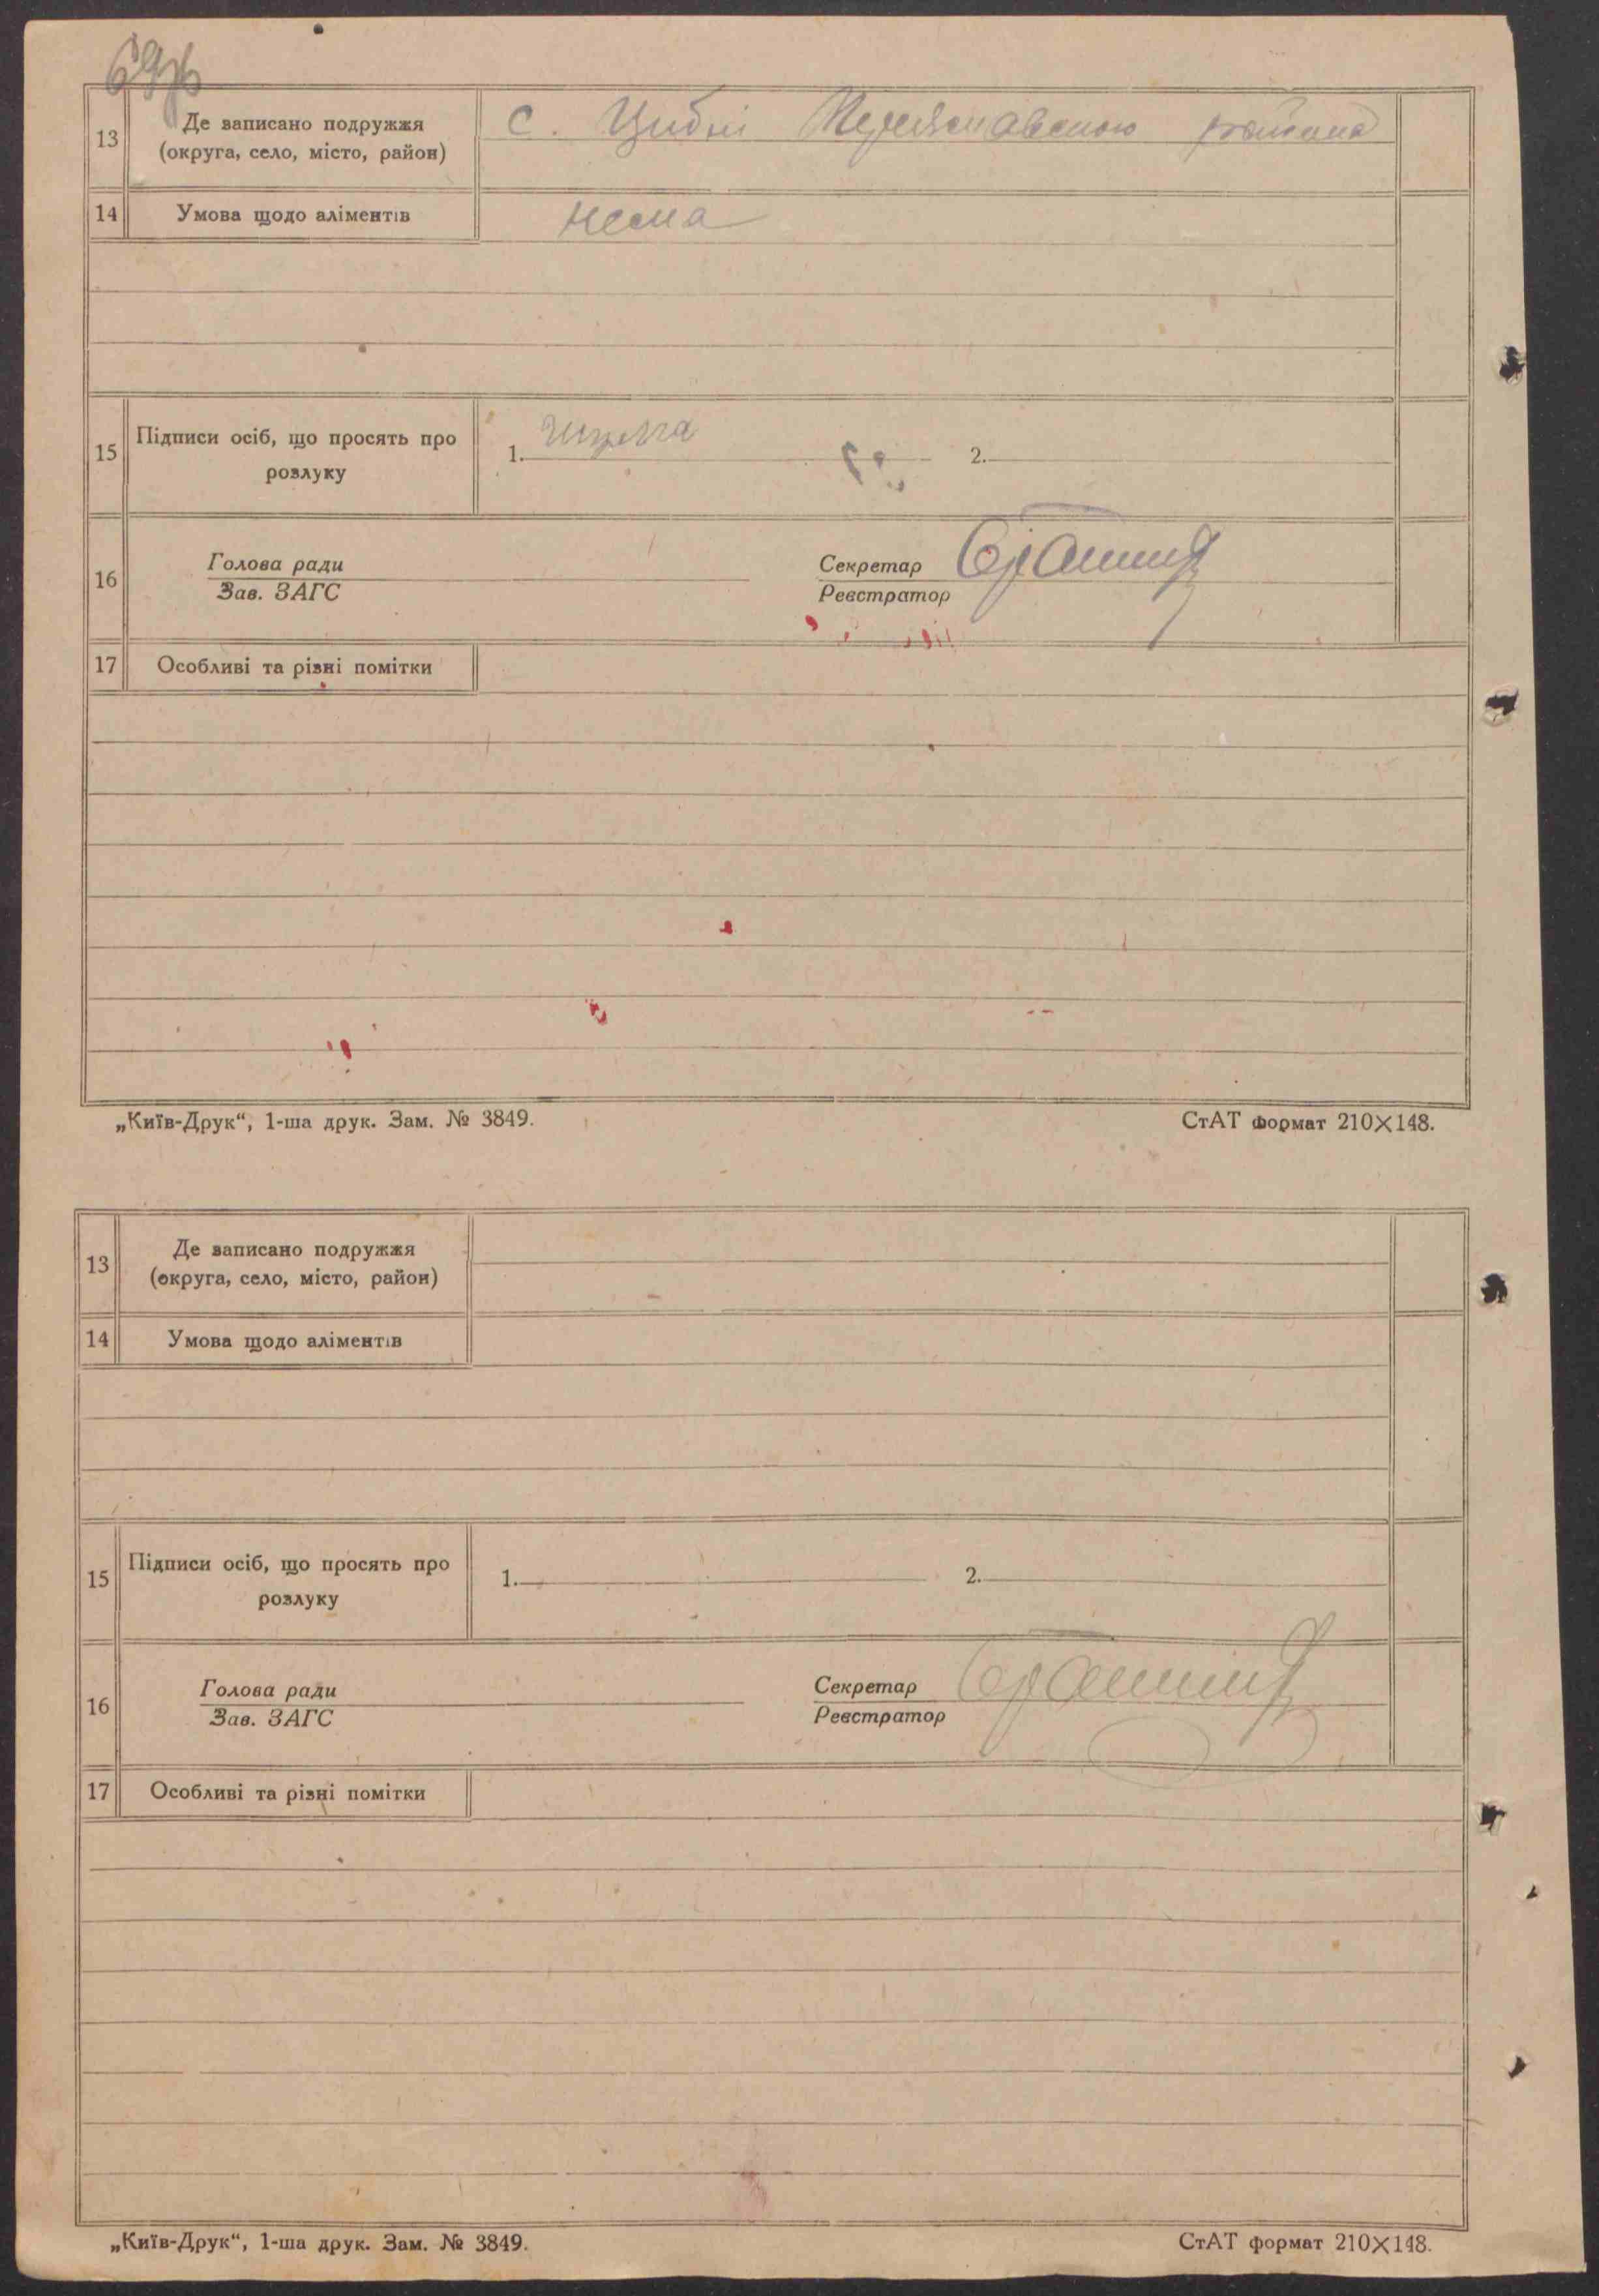 13
Де записано подружжя
(округа, село, місто, район)
с. Циблі Переяславського района
14
Умова щодо аліментів
нема
15
Підписи осіб, що просять про
розлуку
1.
2.
16
Голова ради
Зав. ЗАГС
Секретар
Реєстратор
17
Особливі та різні помітки
„Київ-Друк“, 1-ша друк. Зам. № 3849.
СтАТ формат 210×148.
13
Де записано подружжя
(округа, село, місто, район)
14
Умова щодо аліментів
15
Підписи осіб, що просять про
розлуку
1.
2.
16
Голова ради
Зав. ЗАГС
Секретар
Реєстратор
17
Особливі та різні помітки
„Київ-Друк“, 1-ша друк. Зам. № 3849.
СтАТ формат 210×148.